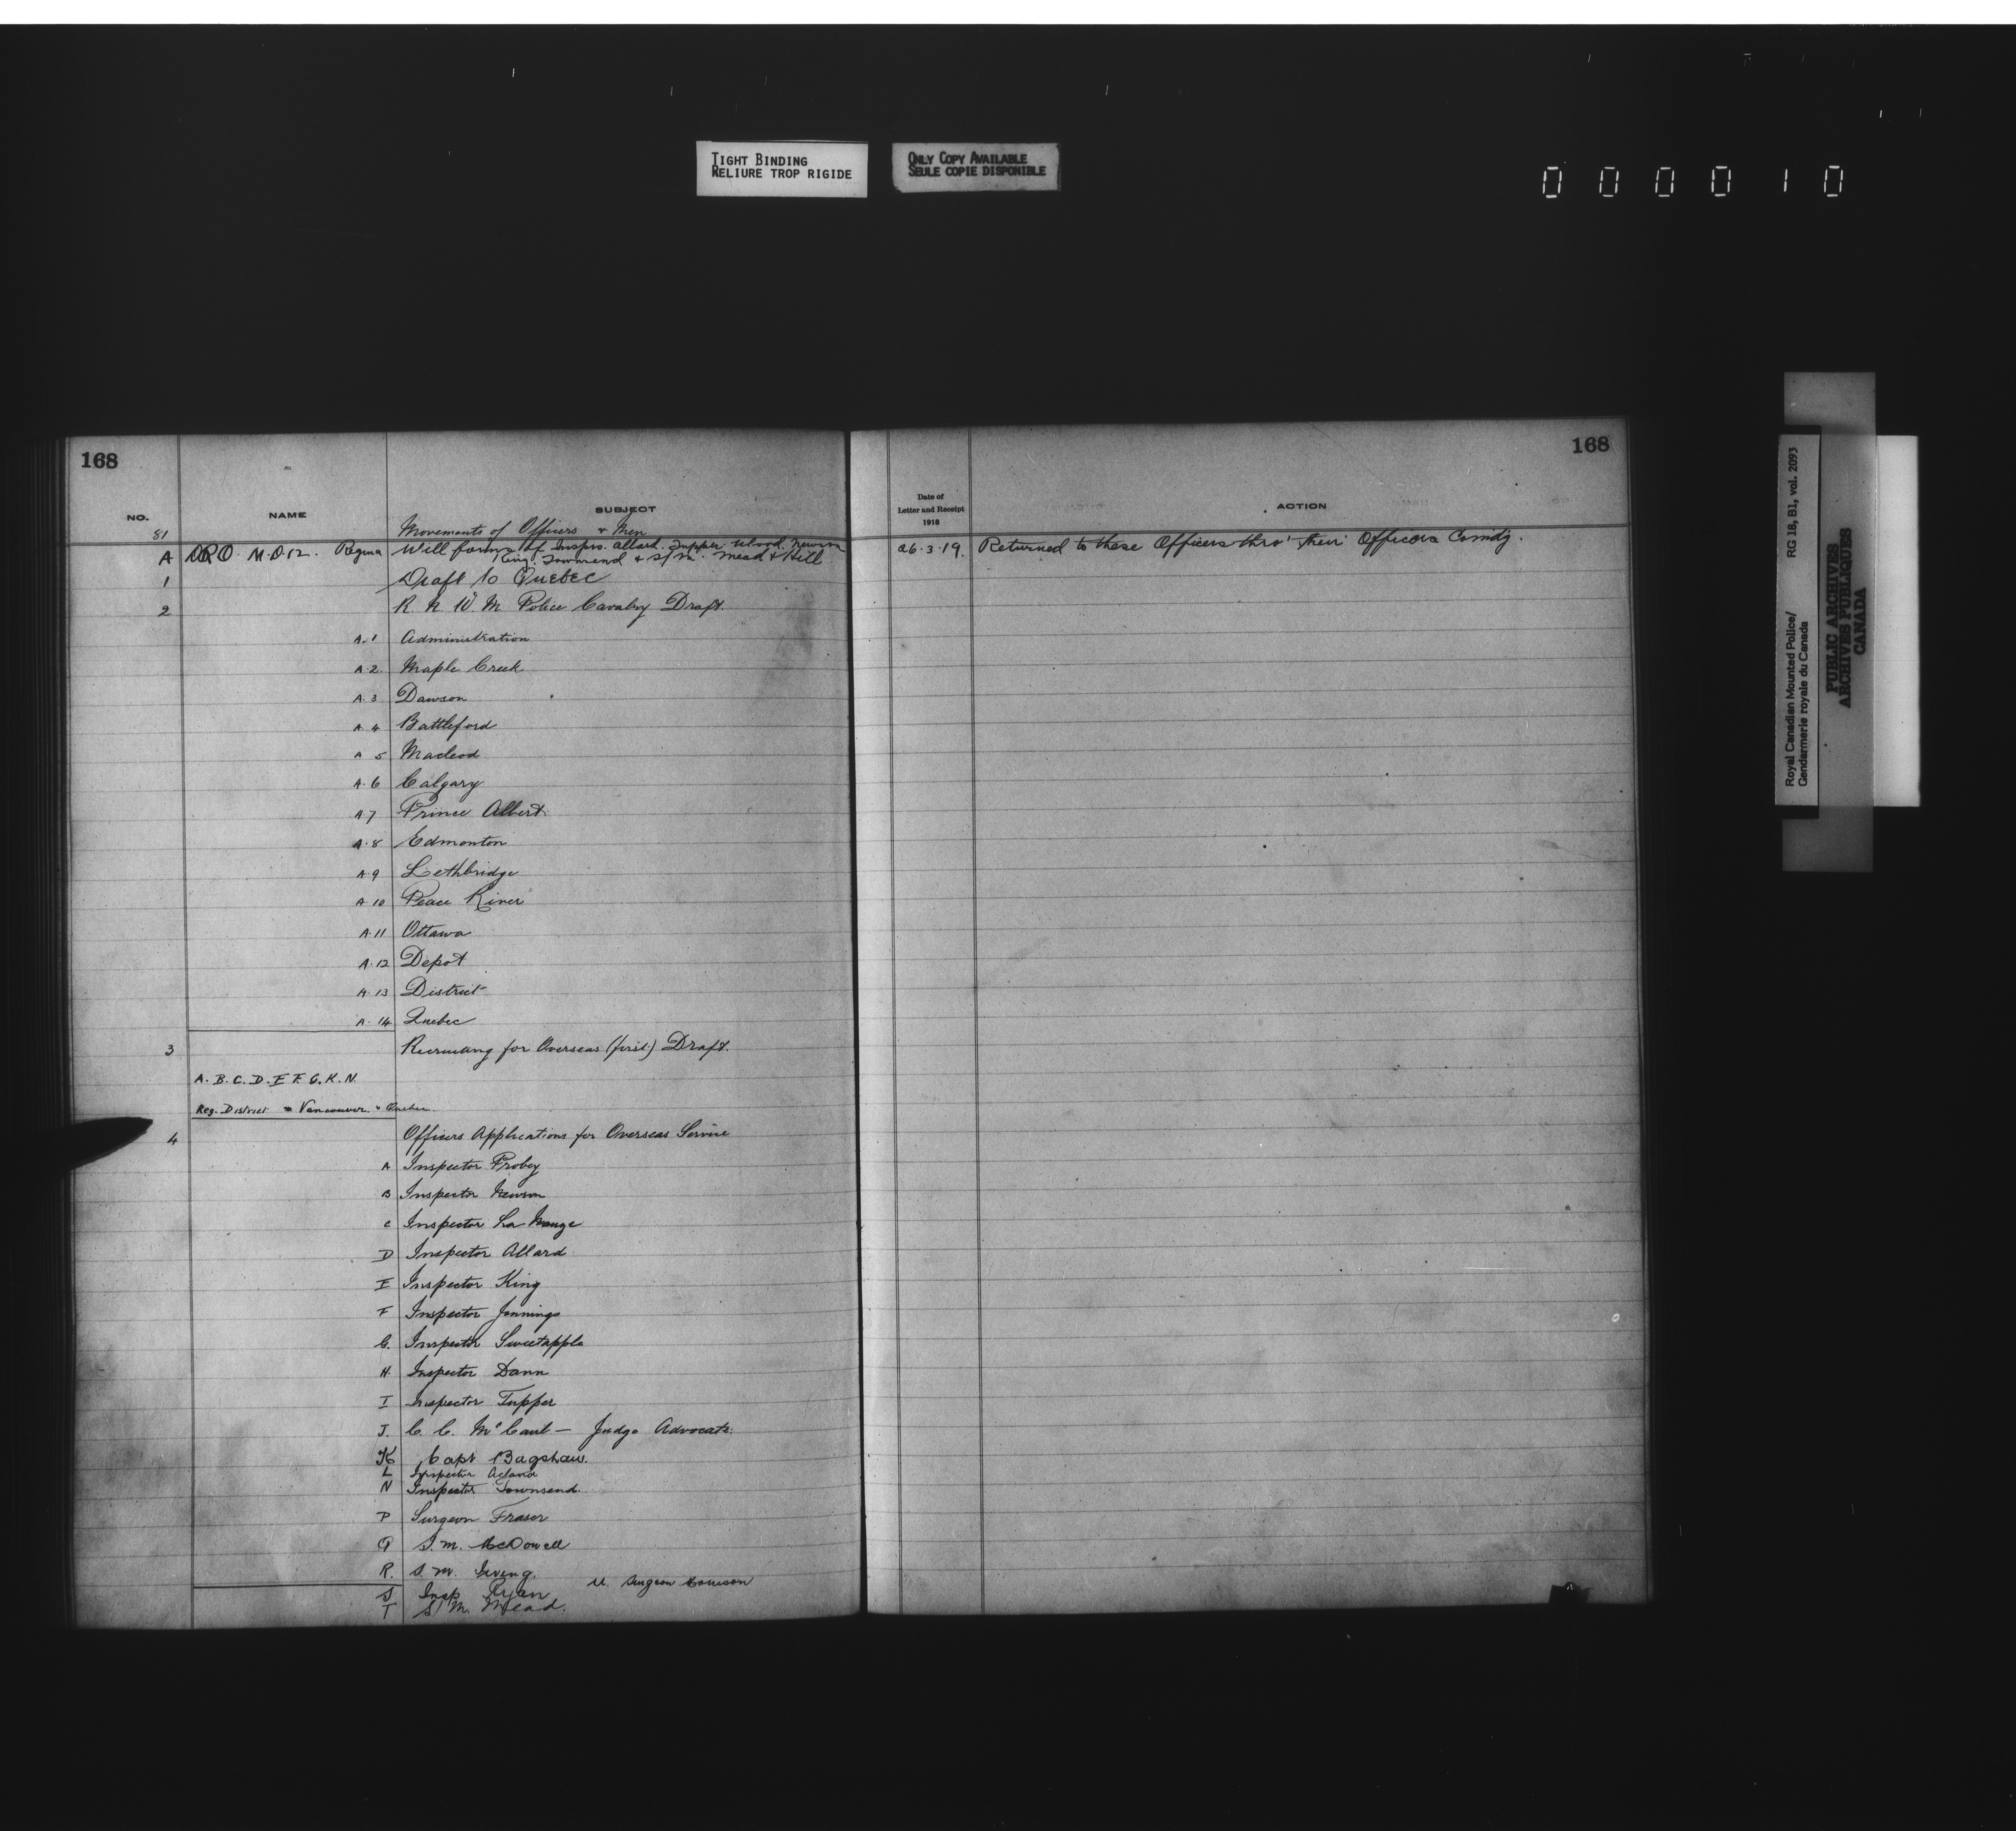 TIGHT BINDING
RELIURE TROP RIGIDE
ONLY COPY AVAILABLE
SEULE COPIE DISPONIBLE
000010
168
168
NO. NAME SUBJECT
Date of
Letter and Receipt
1918
ACTION
81 Movements of Officers & Men
A DRO M.D.12. Regina Will forms of Insprs. Allard. Tupper. Wood. Newson
King. Townsend & S/M. Mead & Hill
26.3.19. Returned to these Officers thro' their Officers Comdg.
1 Draft to Quebec
2 R. N. W. M. Police Cavalry Draft.
A.1 Administration
A.2. Maple Creek
A.3 Dawson
A.4 Battleford
A 5 Macleod
A.6 Calgary
A.7 Prince Albert
A.8 Edmonton
A.9 Lethbridge
A.10 Peace River
A.11 Ottawa
A.12 Depot
A.13 District
A.14 Quebec
3 Recruiting for Overseas (first) Draft.
A. B. C. D. E F. G. K. N.
Reg. District Vancouver Quebec.
4 Officers Applications for Overseas Service
A Inspector Proby
B Inspector Newson
C Inspector La Nauze
D Inspector Allard
E Inspector King
F Inspector Jennings
G. Inspector Sweetapple
H. Inspector Dann
I Inspector Tupper
J. C. C. McCaul — Judge Advocate.
K Capt Bagshaw.
L Inspector Acland
N Inspector Townsend.
P Surgeon Fraser
Q S. M. McDowell
R. S. M. Irving.
U. Surgeon
S Insp Ryan
T S. M. Mead.
Royal Canadian Mounted Police/ RG 18, B1, vol. 2093
Gendarmerie royale du Canada
PUBLIC ARCHIVES
ARCHIVES PUBLIQUES
CANADA